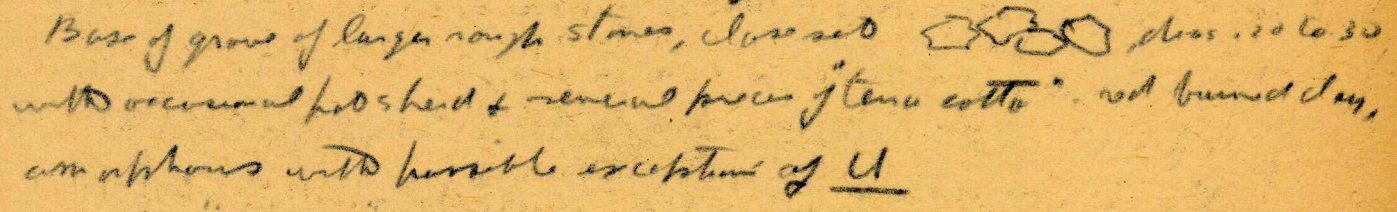 Base of grave of larger rough stones, close set , dias. .20 to .30
with occasional potsherd & several pieces of "terra cotta" - red burned clay,
amorphous with possible exception of U